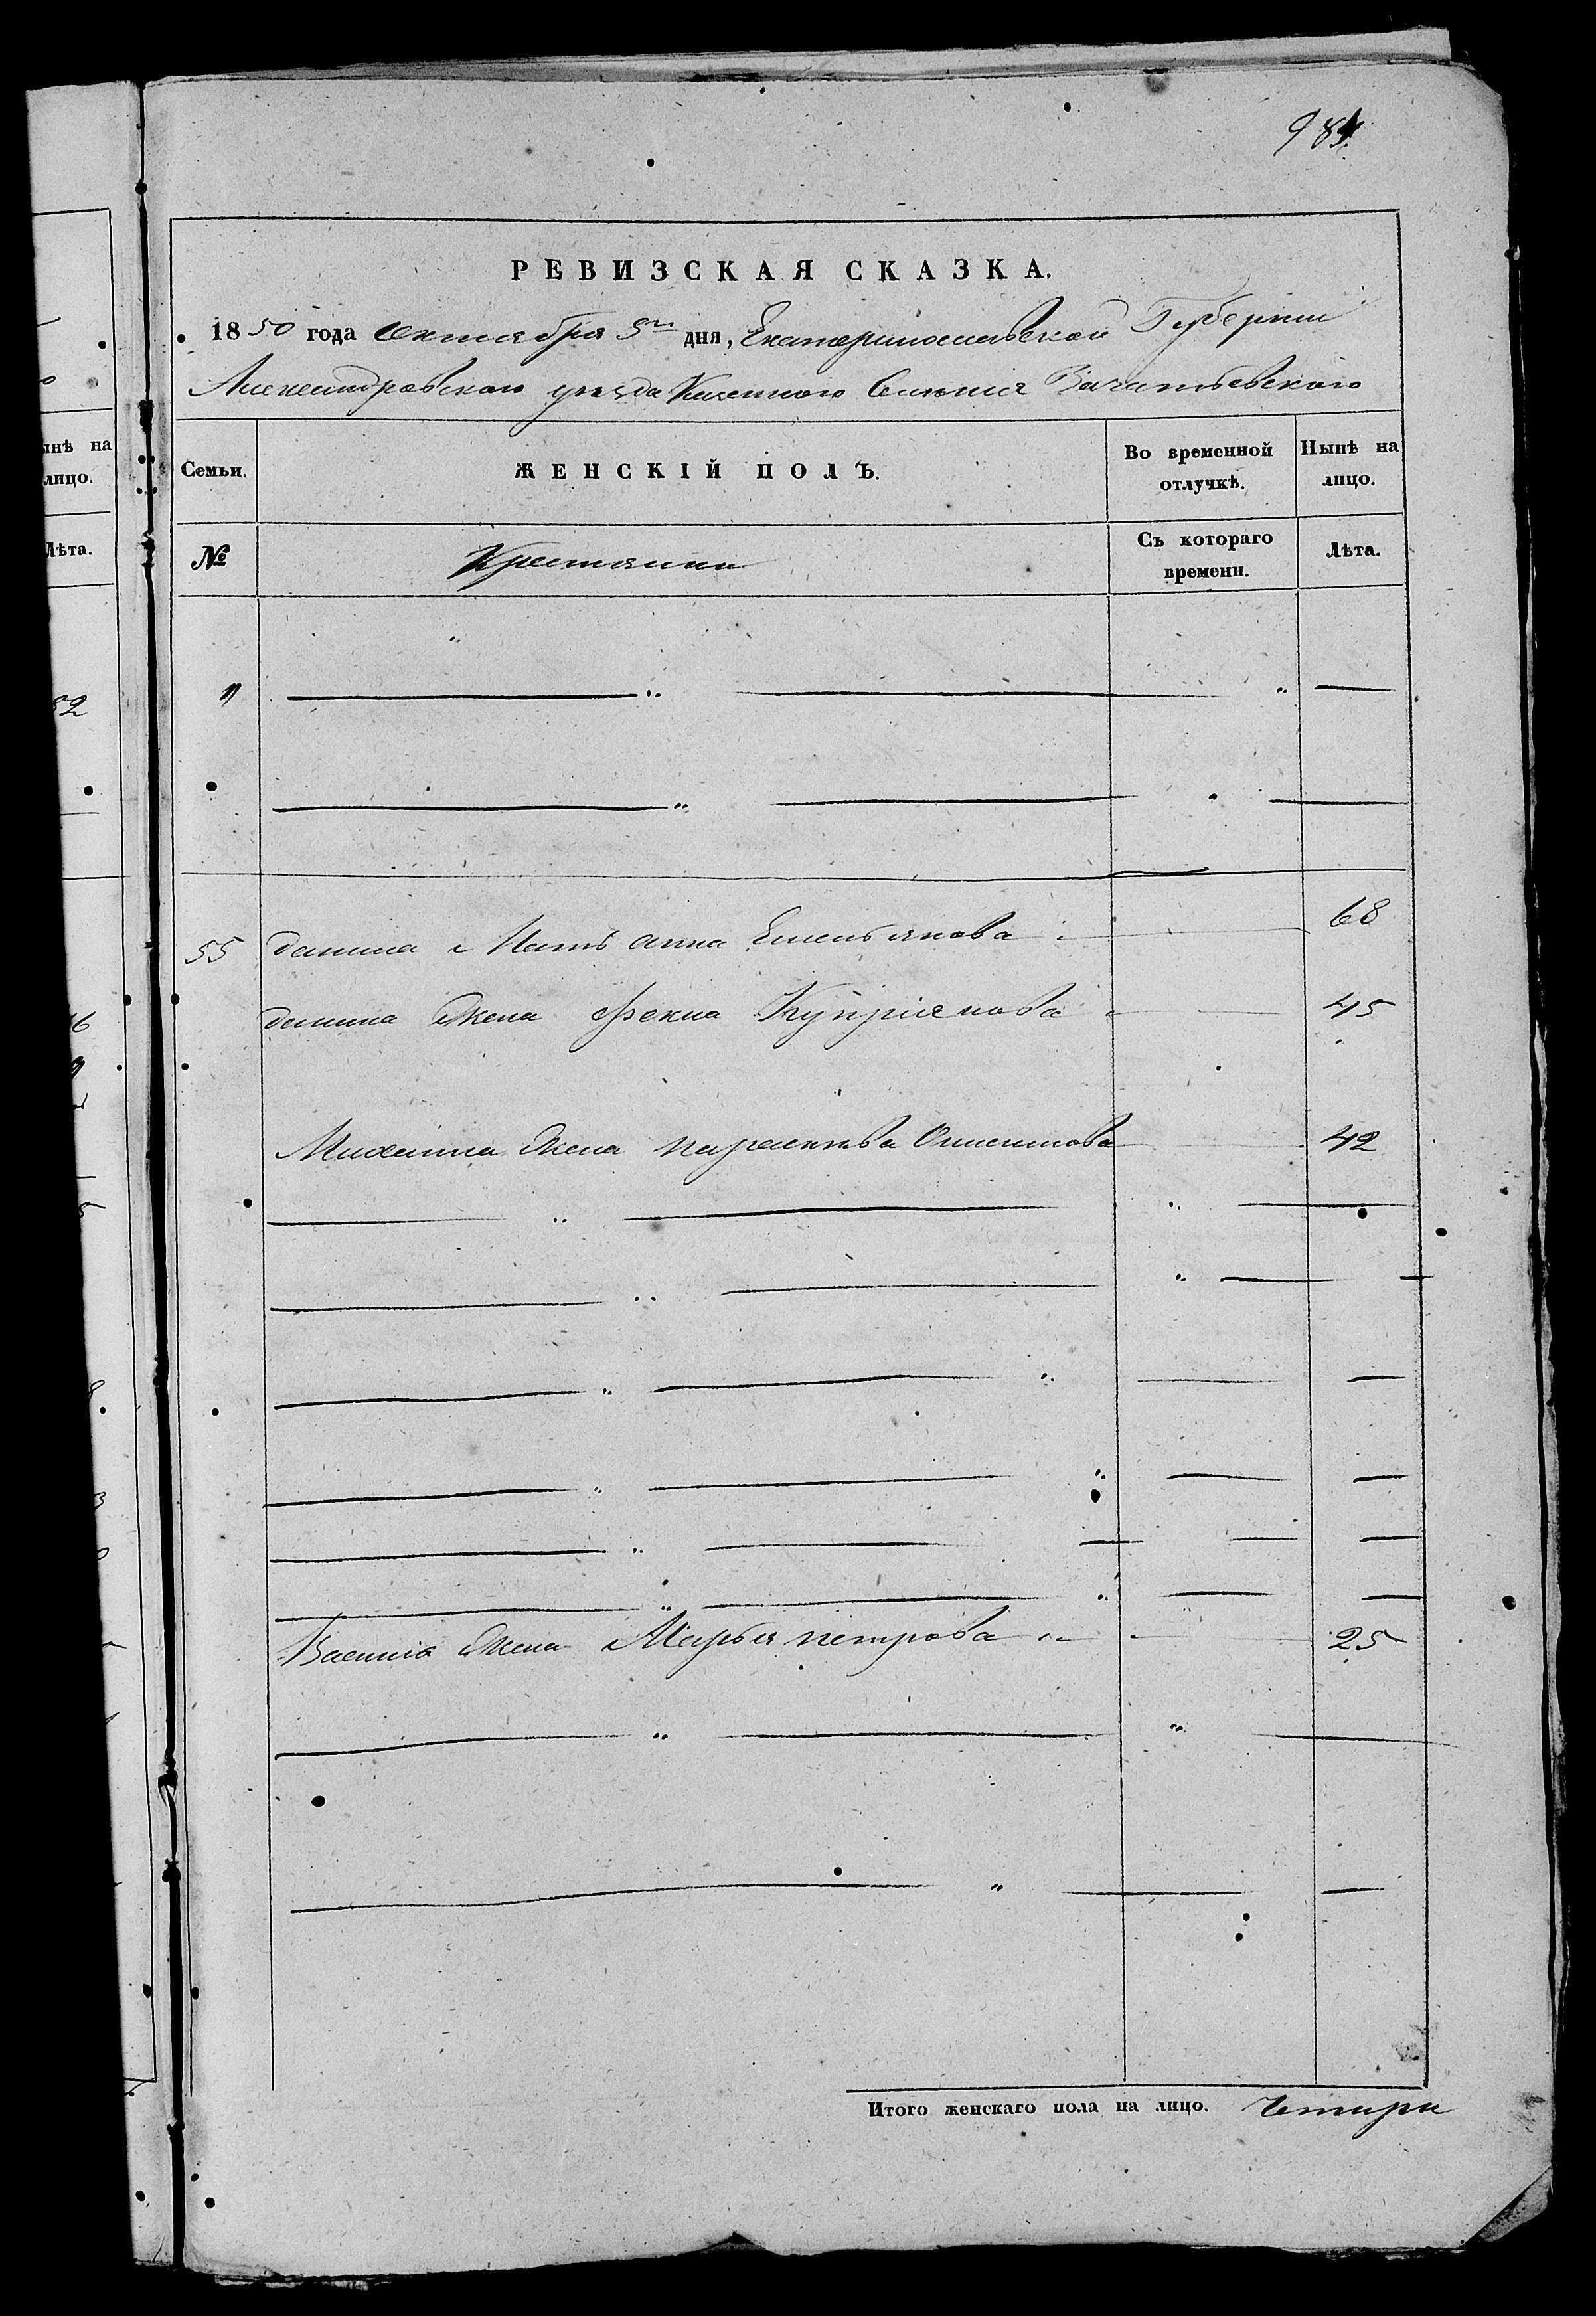 984.
РЕВИЗСКАЯ СКАЗКА.
1850 года Октября 5го дня, Екатеринославской Губернии
Александровского уезда Казенного Селения Зачатьевского
Семьи. ЖЕНСКІЙ ПОЛЪ. Во временной отлучкѣ. Нынѣ на лицо.
№ Крестьянки Съ котораго времени. Лѣта.
55 данила Мать анна Емельянова 68
данила Жена Фекла Купріянова 45
Михаила Жена параскева 42
Василія Жена Марья петрова 25
Итого женскаго пола на лицо. Четири
ынѣ на
лицо.
Лѣта.